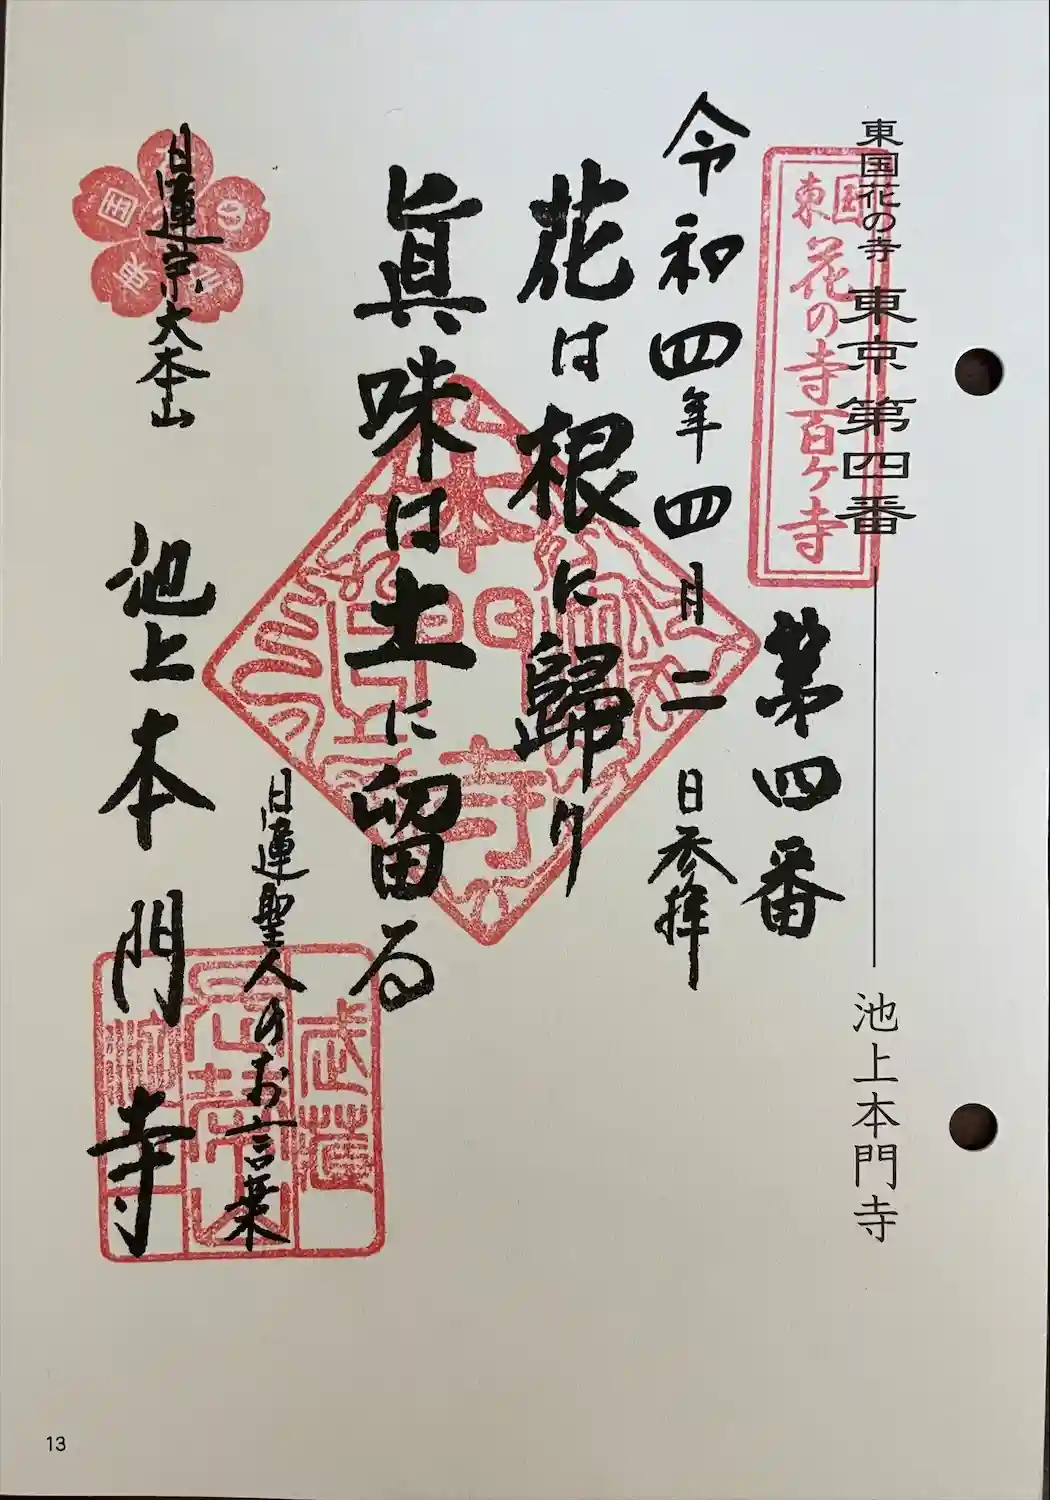 東国花の寺 東京 第四番
池上本門寺
東国花の寺百ヶ寺
第四番
令和四年四月二日参拝
花は根に歸り
眞味は土に留る
日蓮聖人のお言葉
日蓮宗大本山
池上本門寺
13